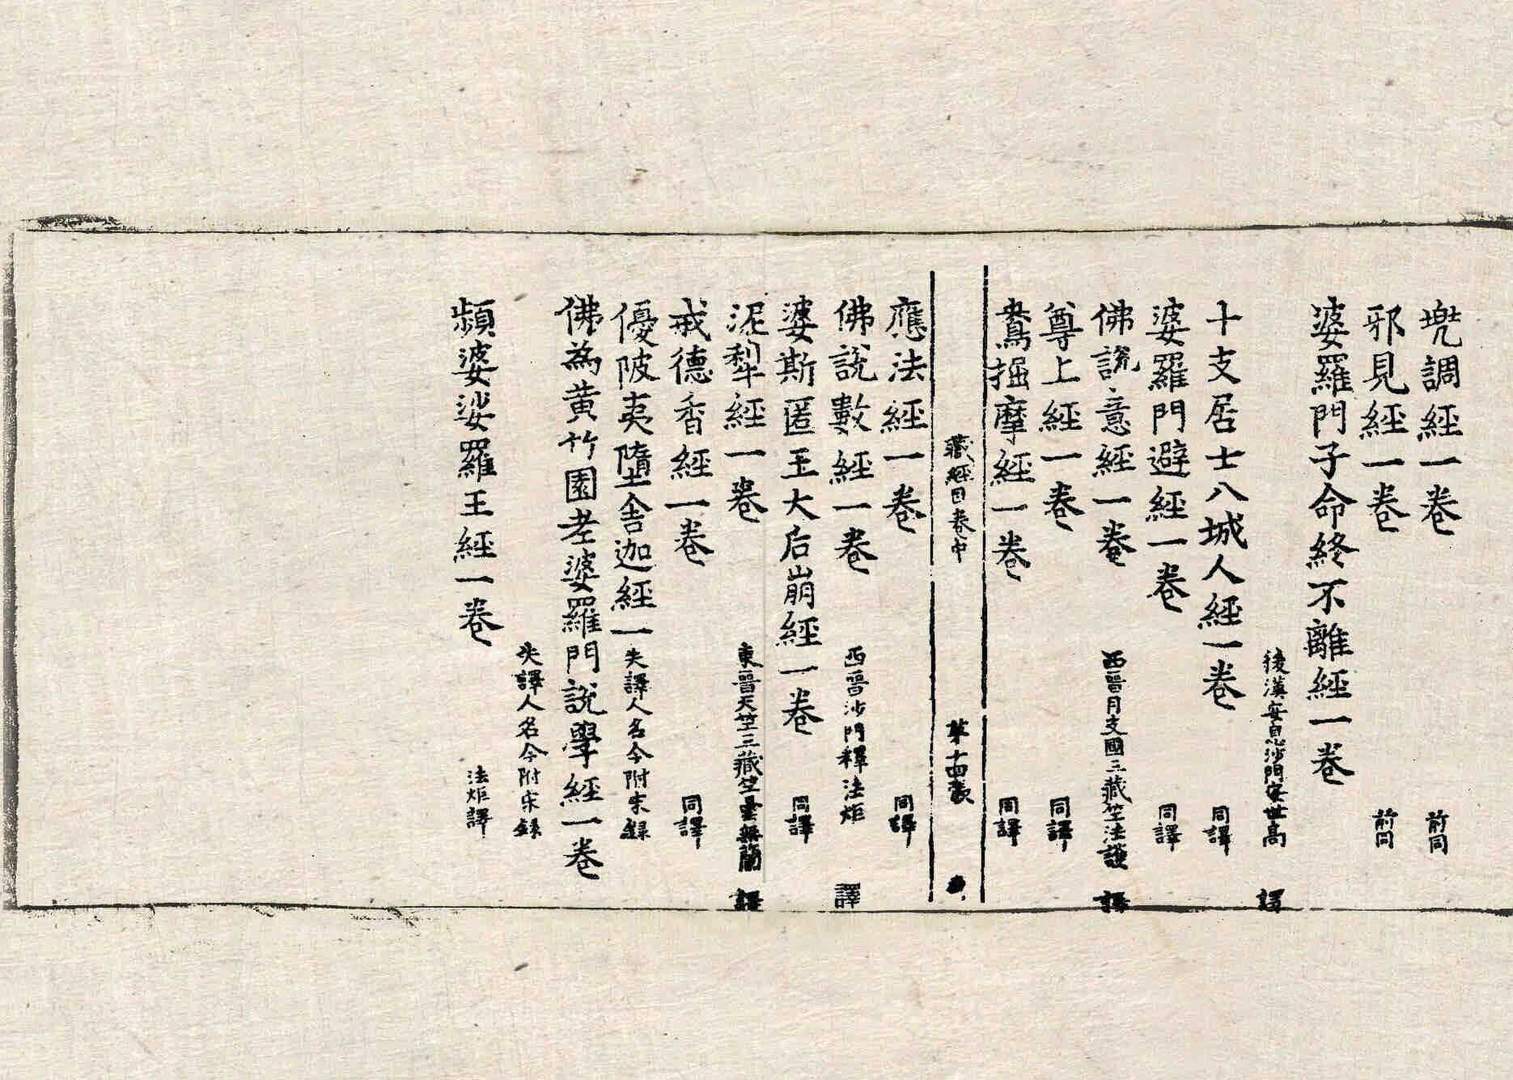 兠調経一卷 前同
邪見経一卷 前同
婆羅門子命終不離経一卷
後漢安息沙門安世高 譯
十支居士八城人経一卷 同譯
婆羅門避経一卷 同譯
佛説意経一卷 西晉月支國三藏竺法護 譯
尊上経一卷 同譯
鴦掘摩経一卷 同譯
藏経目卷中 第十四張
應法経一卷 同譯
佛説數経一卷 西晉沙門釋法炬 譯
婆斯匿王大后崩経一卷 同譯
泥犁経一卷 東晉天竺三藏竺曇無蘭 譯
戒德香経一卷 同譯
優陂夷墮舎迦経一 失譯人名今附宋録
佛為黄竹園老婆羅門説學経一卷
失譯人名今附宋録
頻婆娑羅王経一卷 法炬譯